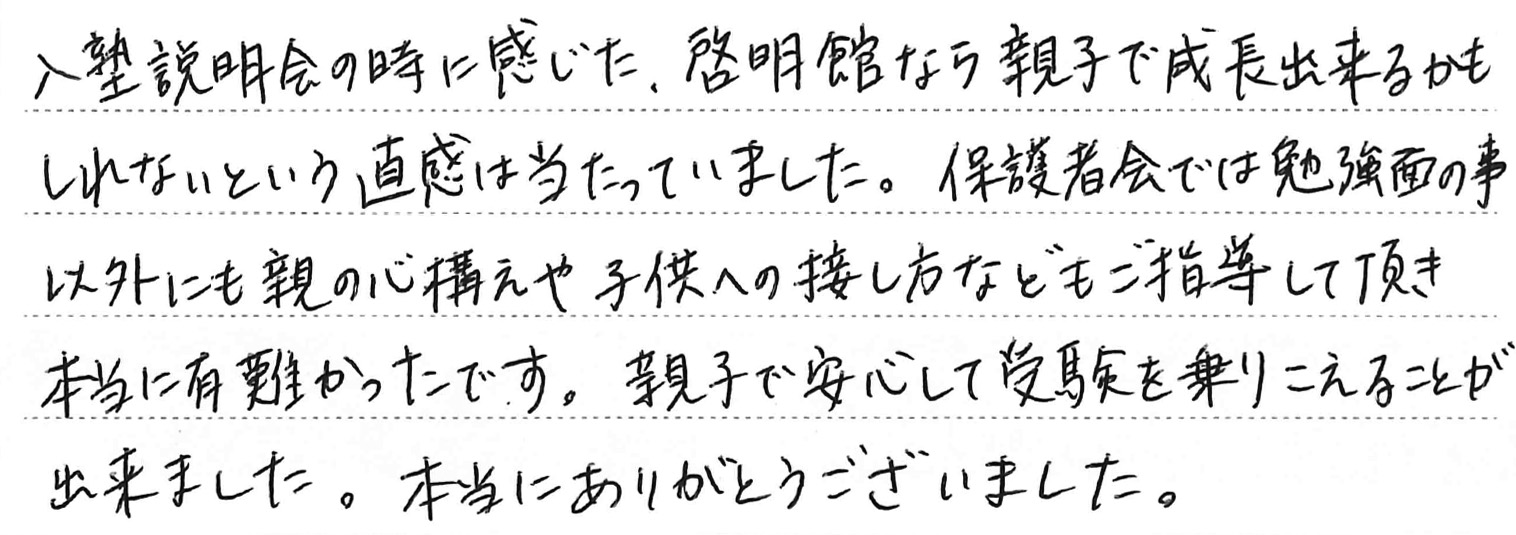 入塾説明会の時に感じた、啓明館なら親子で成長出来るかも
しれないという直感は当たっていました。保護者会では勉強面の事
以外にも親の心構えや子供への接し方などもご指導して頂き
本当に有難かったです。親子で安心して受験を乗りこえることが
出来ました。本当にありがとうございました。